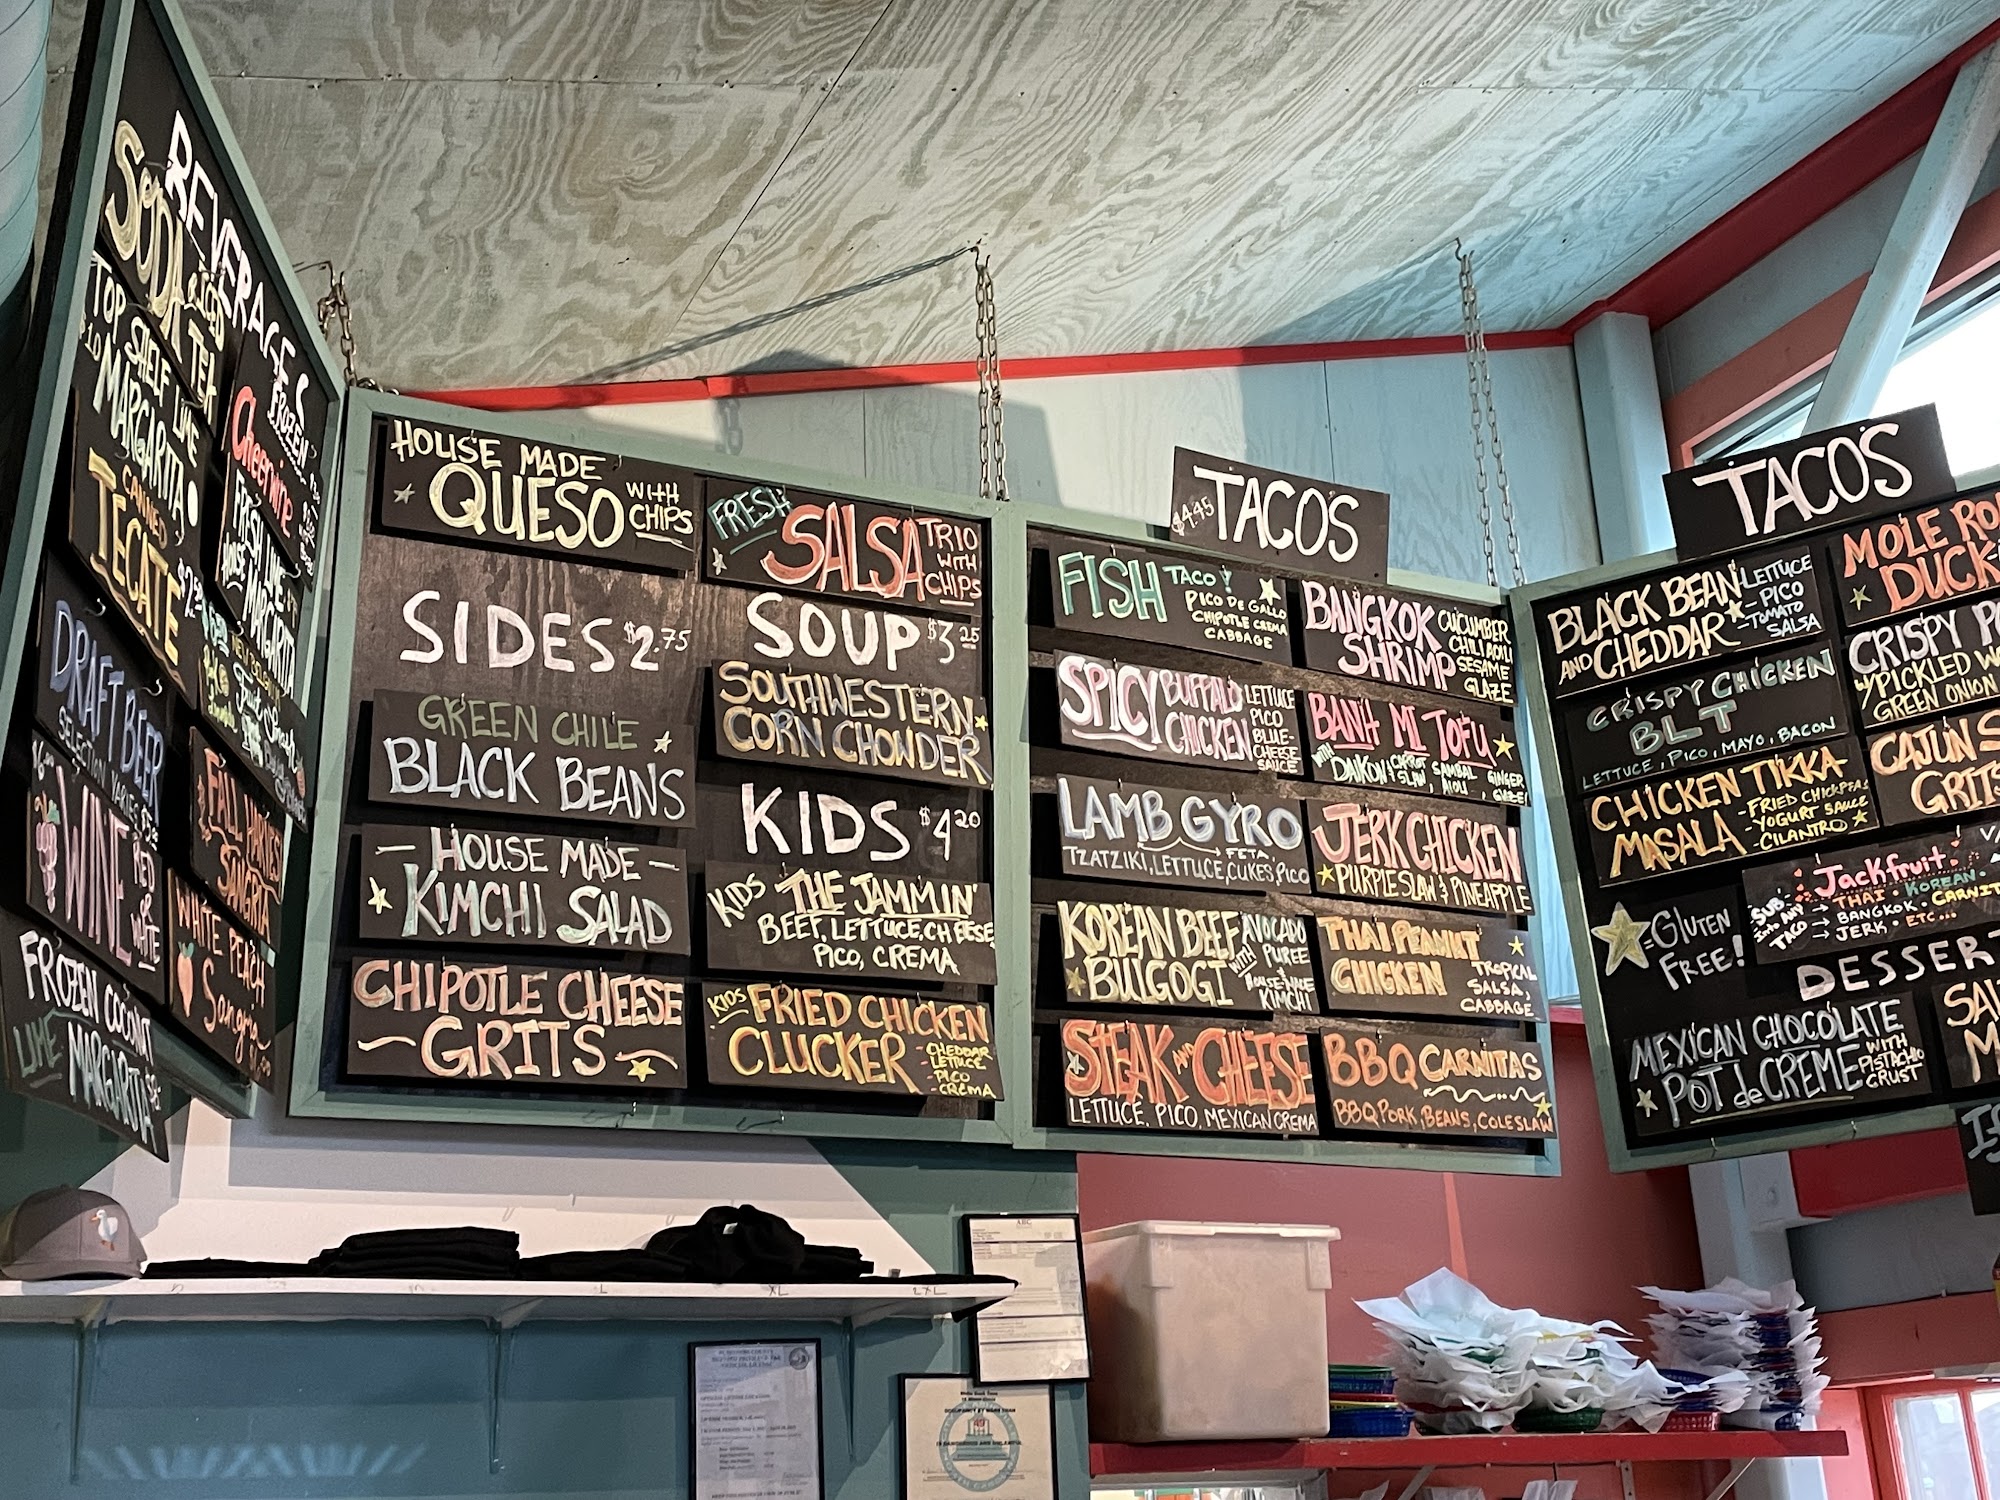 BEVERAGES
SODA & ICED TEA
TOP SHELF LIME
$10 MARGARITA
CANNED
TECATE
DRAFT BEER
SELECTION VARIES
WINE
RED or WHITE
FROZEN COCONUT
LIME MARGARITA
FROZEN
Cheerwine
FRESH LIME
HOUSE MARGARITA
FALL HARVEST
SANGRIA
WHITE PEACH
Sangria
HOUSE MADE
QUESO WITH CHIPS
FRESH SALSA TRIO WITH CHIPS
SIDES $2.75
GREEN CHILE
BLACK BEANS
HOUSE MADE
KIMCHI SALAD
CHIPOTLE CHEESE
GRITS
SOUP $3.25
SOUTHWESTERN
CORN CHOWDER
KIDS $4.20
KIDS THE JAMMIN'
BEEF, LETTUCE, CHEESE,
PICO, CREMA
KIDS FRIED CHICKEN
CLUCKER
- CHEDDAR
LETTUCE
- PICO
CREMA
$4.45 TACOS
FISH TACO!
PICO DE GALLO
CHIPOTLE CREMA
CABBAGE
SPICY BUFFALO CHICKEN
LETTUCE
PICO
BLUE-
CHEESE
SAUCE
LAMB GYRO
FETA,
TZATZIKI, LETTUCE, CUKES, PICO
KOREAN BEEF
BULGOGI
WITH AVOCADO
PUREE
+ HOUSE-MADE
KIMCHI
STEAK AND CHEESE
LETTUCE, PICO, MEXICAN CREMA
BANGKOK
SHRIMP
CUCUMBER
CHILI AIOLI
SESAME
GLAZE
BANH MI TOFU
WITH DAIKON & CARROT SLAW, SAMBAL AIOLI, GINGER
JERK CHICKEN
PURPLE SLAW & PINEAPPLE
THAI PEANUT
CHICKEN
TROPICAL
SALSA,
CABBAGE
BBQ CARNITAS
BBQ PORK, BEANS, COLESLAW
TACOS
BLACK BEAN
AND CHEDDAR
LETTUCE
- PICO
- TOMATO
SALSA
CRISPY CHICKEN
BLT
LETTUCE, PICO, MAYO, BACON
CHICKEN TIKKA
MASALA
- FRIED CHICKPEAS
- YOGURT SAUCE
- CILANTRO
= GLUTEN
FREE!
MOLE
DUCK
CRISPY
W/ PICKLED
GREEN ONION
CAJUN
GRITS
SUB Jackfruit
Into ANY TACO
THAI · KOREAN ·
BANGKOK · CARNIT
JERK · ETC...
DESSERT
MEXICAN CHOCOLATE
POT de CREME
WITH
PISTACHIO
CRUST
L
XL
2XL